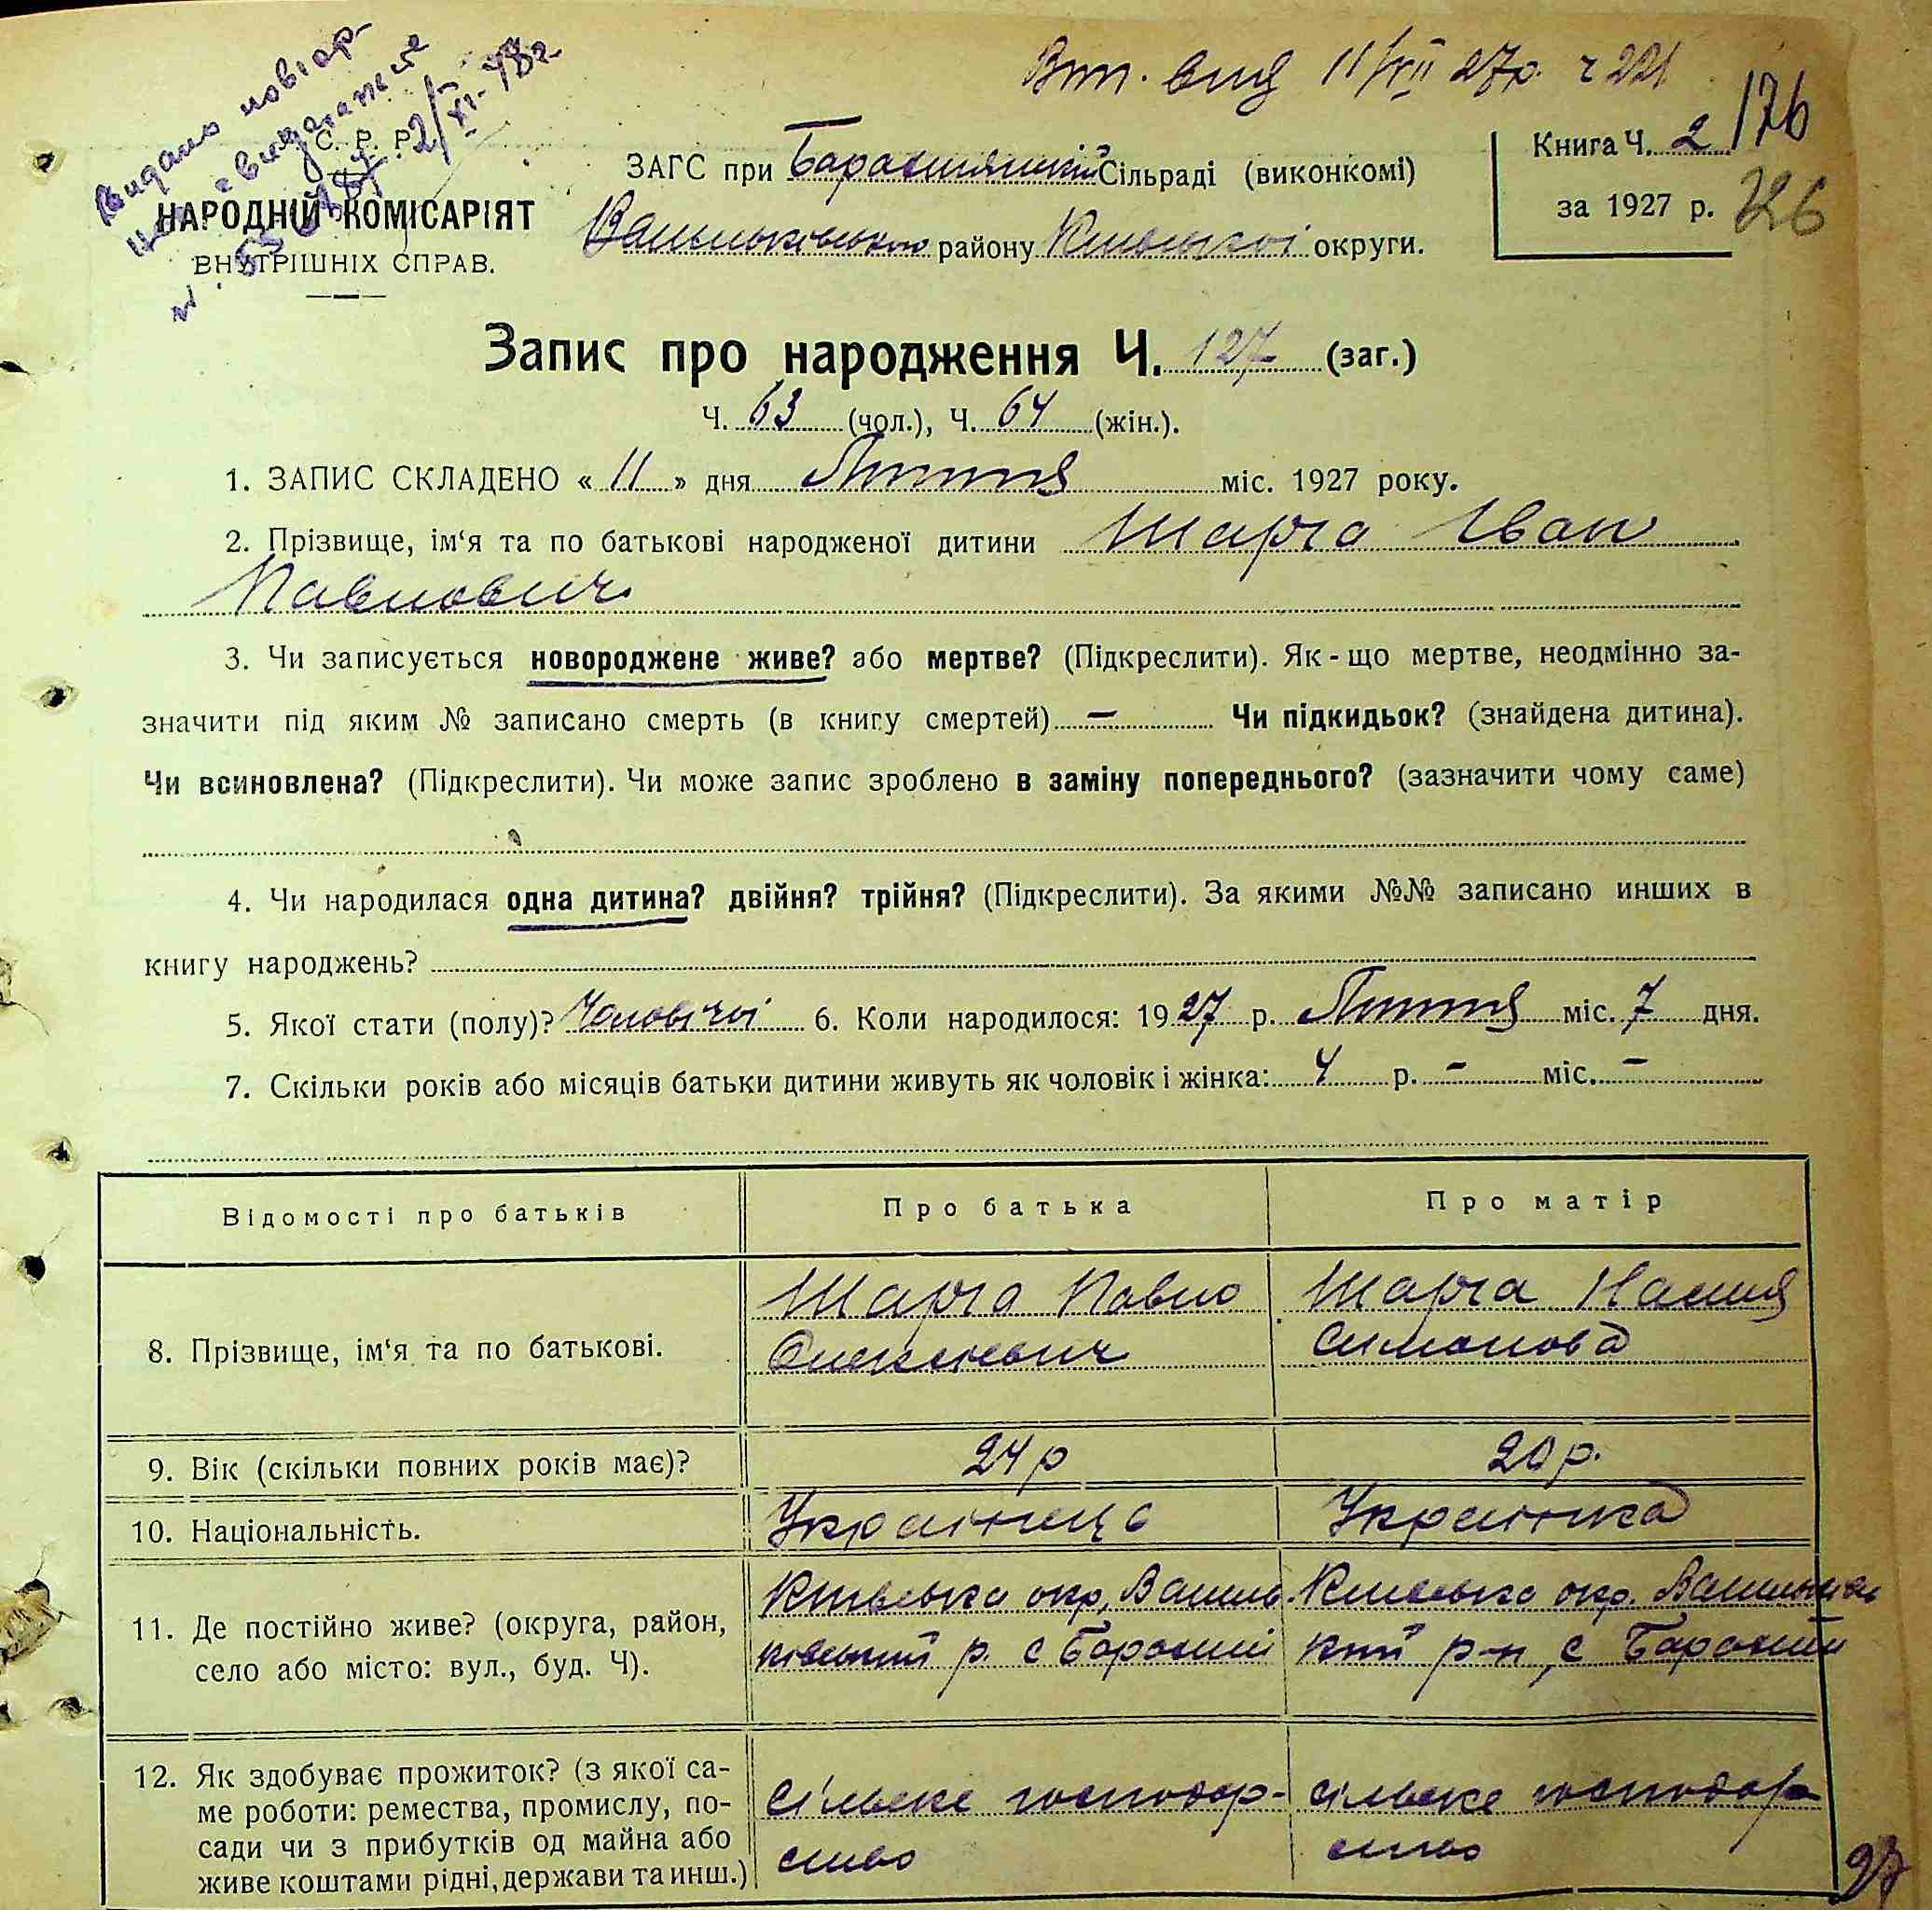 Видано повтор-
не свидетель
2/XI-48г.
Вип. вид 11/VII 27р. ч 221
С. Р. Р.
НАРОДНІЙ КОМІСАРІЯТ
ВНУТРІШНІХ СПРАВ.
ЗАГС при Барахтянській Сільраді (виконкомі)
Васильківського району Київської округи.
Книга Ч. 2 176
за 1927 р. 226
Запис про народження Ч. 127 (заг.)
Ч. 63 (чол.), Ч. 64 (жін.).
1. ЗАПИС СКЛАДЕНО « 11 » дня Липня міс. 1927 року.
2. Прізвище, ім‘я та по батькові народженої дитини Шарга Іван
Павлович
3. Чи записується новороджене живе? або мертве? (Підкреслити). Як-що мертве, неодмінно за-
значити під яким № записано смерть (в книгу смертей) — Чи підкидьок? (знайдена дитина).
Чи всиновлена? (Підкреслити). Чи може запис зроблено в заміну попереднього? (зазначити чому саме)
4. Чи народилася одна дитина? двійня? трійня? (Підкреслити). За якими №№ записано инших в
книгу народжень?
5. Якої стати (полу)? Чоловічої 6. Коли народилося: 1927 р. Липня міс. 7 дня.
7. Скільки років або місяців батьки дитини живуть як чоловік і жінка: 4 р. — міс. —
Відомості про батьків Про батька Про матір
8. Прізвище, ім‘я та по батькові.
Шарга Павло
Олексієвич
Шарга Настя
Симонова
9. Вік (скільки повних років має)? 24 р 20 р.
10. Національність. Українець Українка
11. Де постійно живе? (округа, район,
село або місто: вул., буд. Ч).
Київська окр, Василь-
ківський р. с Барахти
Київська окр. Васильків
кий р-н, с Барахти
12. Як здобуває прожиток? (з якої са-
ме роботи: ремества, промислу, по-
сади чи з прибутків од майна або
живе коштами рідні, держави та инш.)
сільське господар-
ство
сільське господар
ство
97